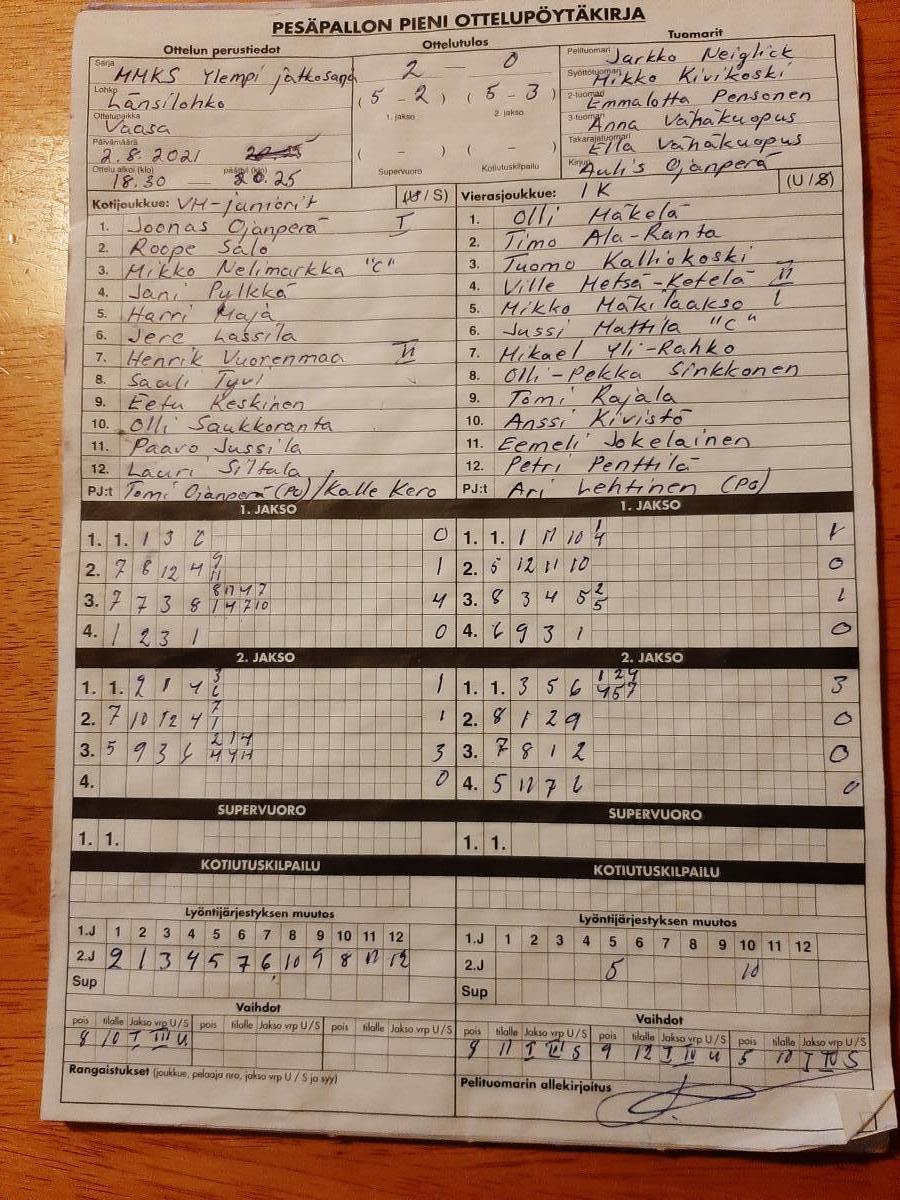 PESÄPALLON PIENI OTTELUPÖYTÄKIRJA
Ottelun perustiedot
Sarja MMKS Ylempi jatkosarja
Lohko Länsilohko
Ottelupaikka Vaasa
Päivämäärä 2.8.2021
Ottelu alkoi (klo) 18.30 — päättyi (klo) 20.25
Ottelutulos
2 — 0
(5 - 2) (5 - 3)
1. jakso 2. jakso
( - ) ( - )
Supervuoro Kotiutuskilpailu
Tuomarit
Pelituomari Jarkko Neiglick
Syöttötuomari Mikko Kivikoski
2-tuomari Emmalotta Pensonen
3-tuomari Anna Vähäkuopus
Takarajatuomari Ella Vähäkuopus
Kirjuri Aulis Ojanperä
Kotijoukkue: VH-juniorit (U / S)
1. Joonas Ojanperä I
2. Roope Salo
3. Mikko Nelimarkka "C"
4. Jani Pylkkä
5. Harri Maja
6. Jere Lassila
7. Henrik Vuorenmaa II
8. Sauli Tyvi
9. Eetu Keskinen
10. Olli Saukkoranta
11. Paavo Jussila
12. Lauri Siltala
PJ:t Tomi Ojanperä (PO) / Kalle Kero
Vierasjoukkue: IK (U / S)
1. Olli Mäkelä
2. Timo Ala-Ranta
3. Tuomo Kalliokoski
4. Ville Metsä-Ketelä II
5. Mikko Mäkilaakso I
6. Jussi Mattila "C"
7. Mikael Yli-Rahko
8. Olli-Pekka Sinkkonen
9. Tomi Rajala
10. Anssi Kivistö
11. Eemeli Jokelainen
12. Petri Penttilä
PJ:t Ari Lehtinen (PO)
1. JAKSO
1. 1. 1 3 6 0
2. 7 8 12 4 9 11 1
3. 7 7 3 8 4
4. 1 2 3 1 0
1. JAKSO
1. 1. 1 11 10 1 4 1
2. 5 12 11 10 0
3. 8 3 4 5 2 5 1
4. 6 9 3 1 0
2. JAKSO
1. 1. 2 1 4 3 6 1
2. 7 10 12 4 7 1 1
3. 5 9 3 6 3
4. 0
2. JAKSO
1. 1. 3 5 6 1 2 4 4 5 7 3
2. 8 1 2 9 0
3. 7 8 1 2 0
4. 5 11 7 6 0
SUPERVUORO
1. 1.
SUPERVUORO
1. 1.
KOTIUTUSKILPAILU
KOTIUTUSKILPAILU
Lyöntijärjestyksen muutos
1.J 1 2 3 4 5 6 7 8 9 10 11 12
2.J 2 1 3 4 5 7 6 10 9 8 11 12
Sup
Lyöntijärjestyksen muutos
1.J 1 2 3 4 5 6 7 8 9 10 11 12
2.J 5 10
Sup
Vaihdot
pois tilalle Jakso vrp U / S pois tilalle Jakso vrp U / S pois tilalle Jakso vrp U / S
8 10 I III U
Rangaistukset (joukkue, pelaaja nro, jakso vrp U / S ja syy)
Vaihdot
pois tilalle Jakso vrp U / S pois tilalle Jakso vrp U / S pois tilalle Jakso vrp U / S
11 I S 9 12 I IV U 5 10 I IV S
Pelituomarin allekirjoitus